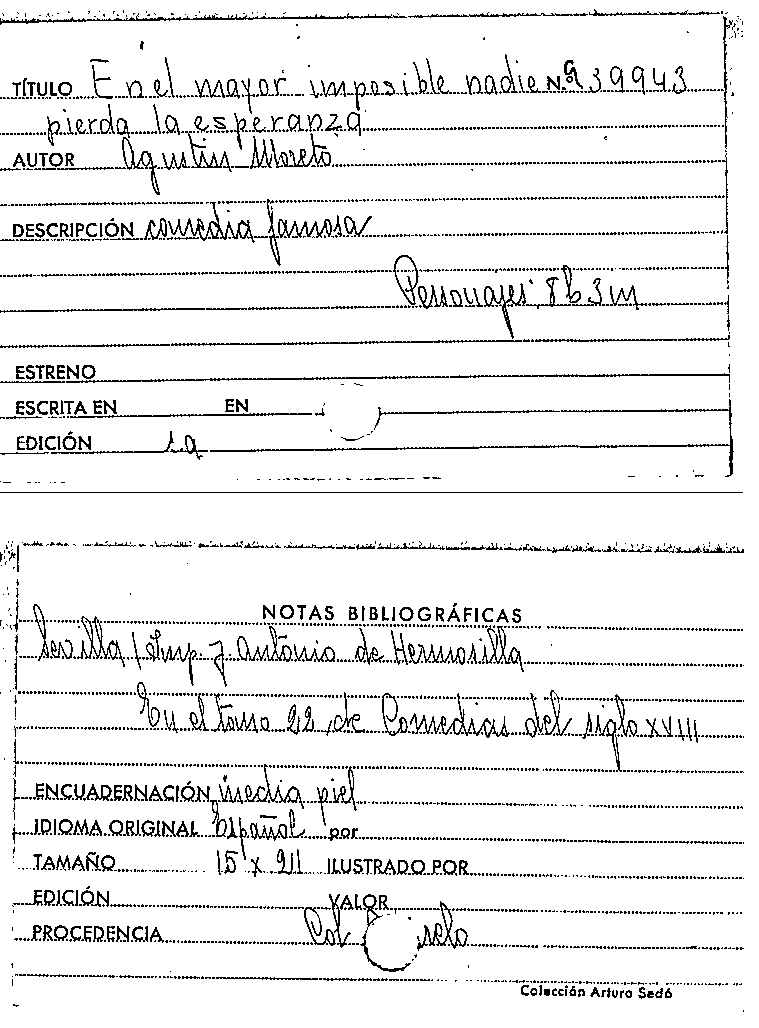 TÍTULO En el mayor imposible nadie N.º 39943
pierda la esperanza
AUTOR Agustin Moreto
DESCRIPCIÓN comedia famosa
Personajes 8h 3m
ESTRENO
ESCRITA EN EN
EDICIÓN 1a
NOTAS BIBLIOGRÁFICAS
Sevilla / Imp. J. Antonio de Hermosilla
En el tomo 22 de Comedias del siglo XVIII
ENCUADERNACIÓN media piel
IDIOMA ORIGINAL Español por
TAMAÑO 15 x 211 ILUSTRADO POR
EDICIÓN VALOR
PROCEDENCIA Col
Colección Arturo Sedó